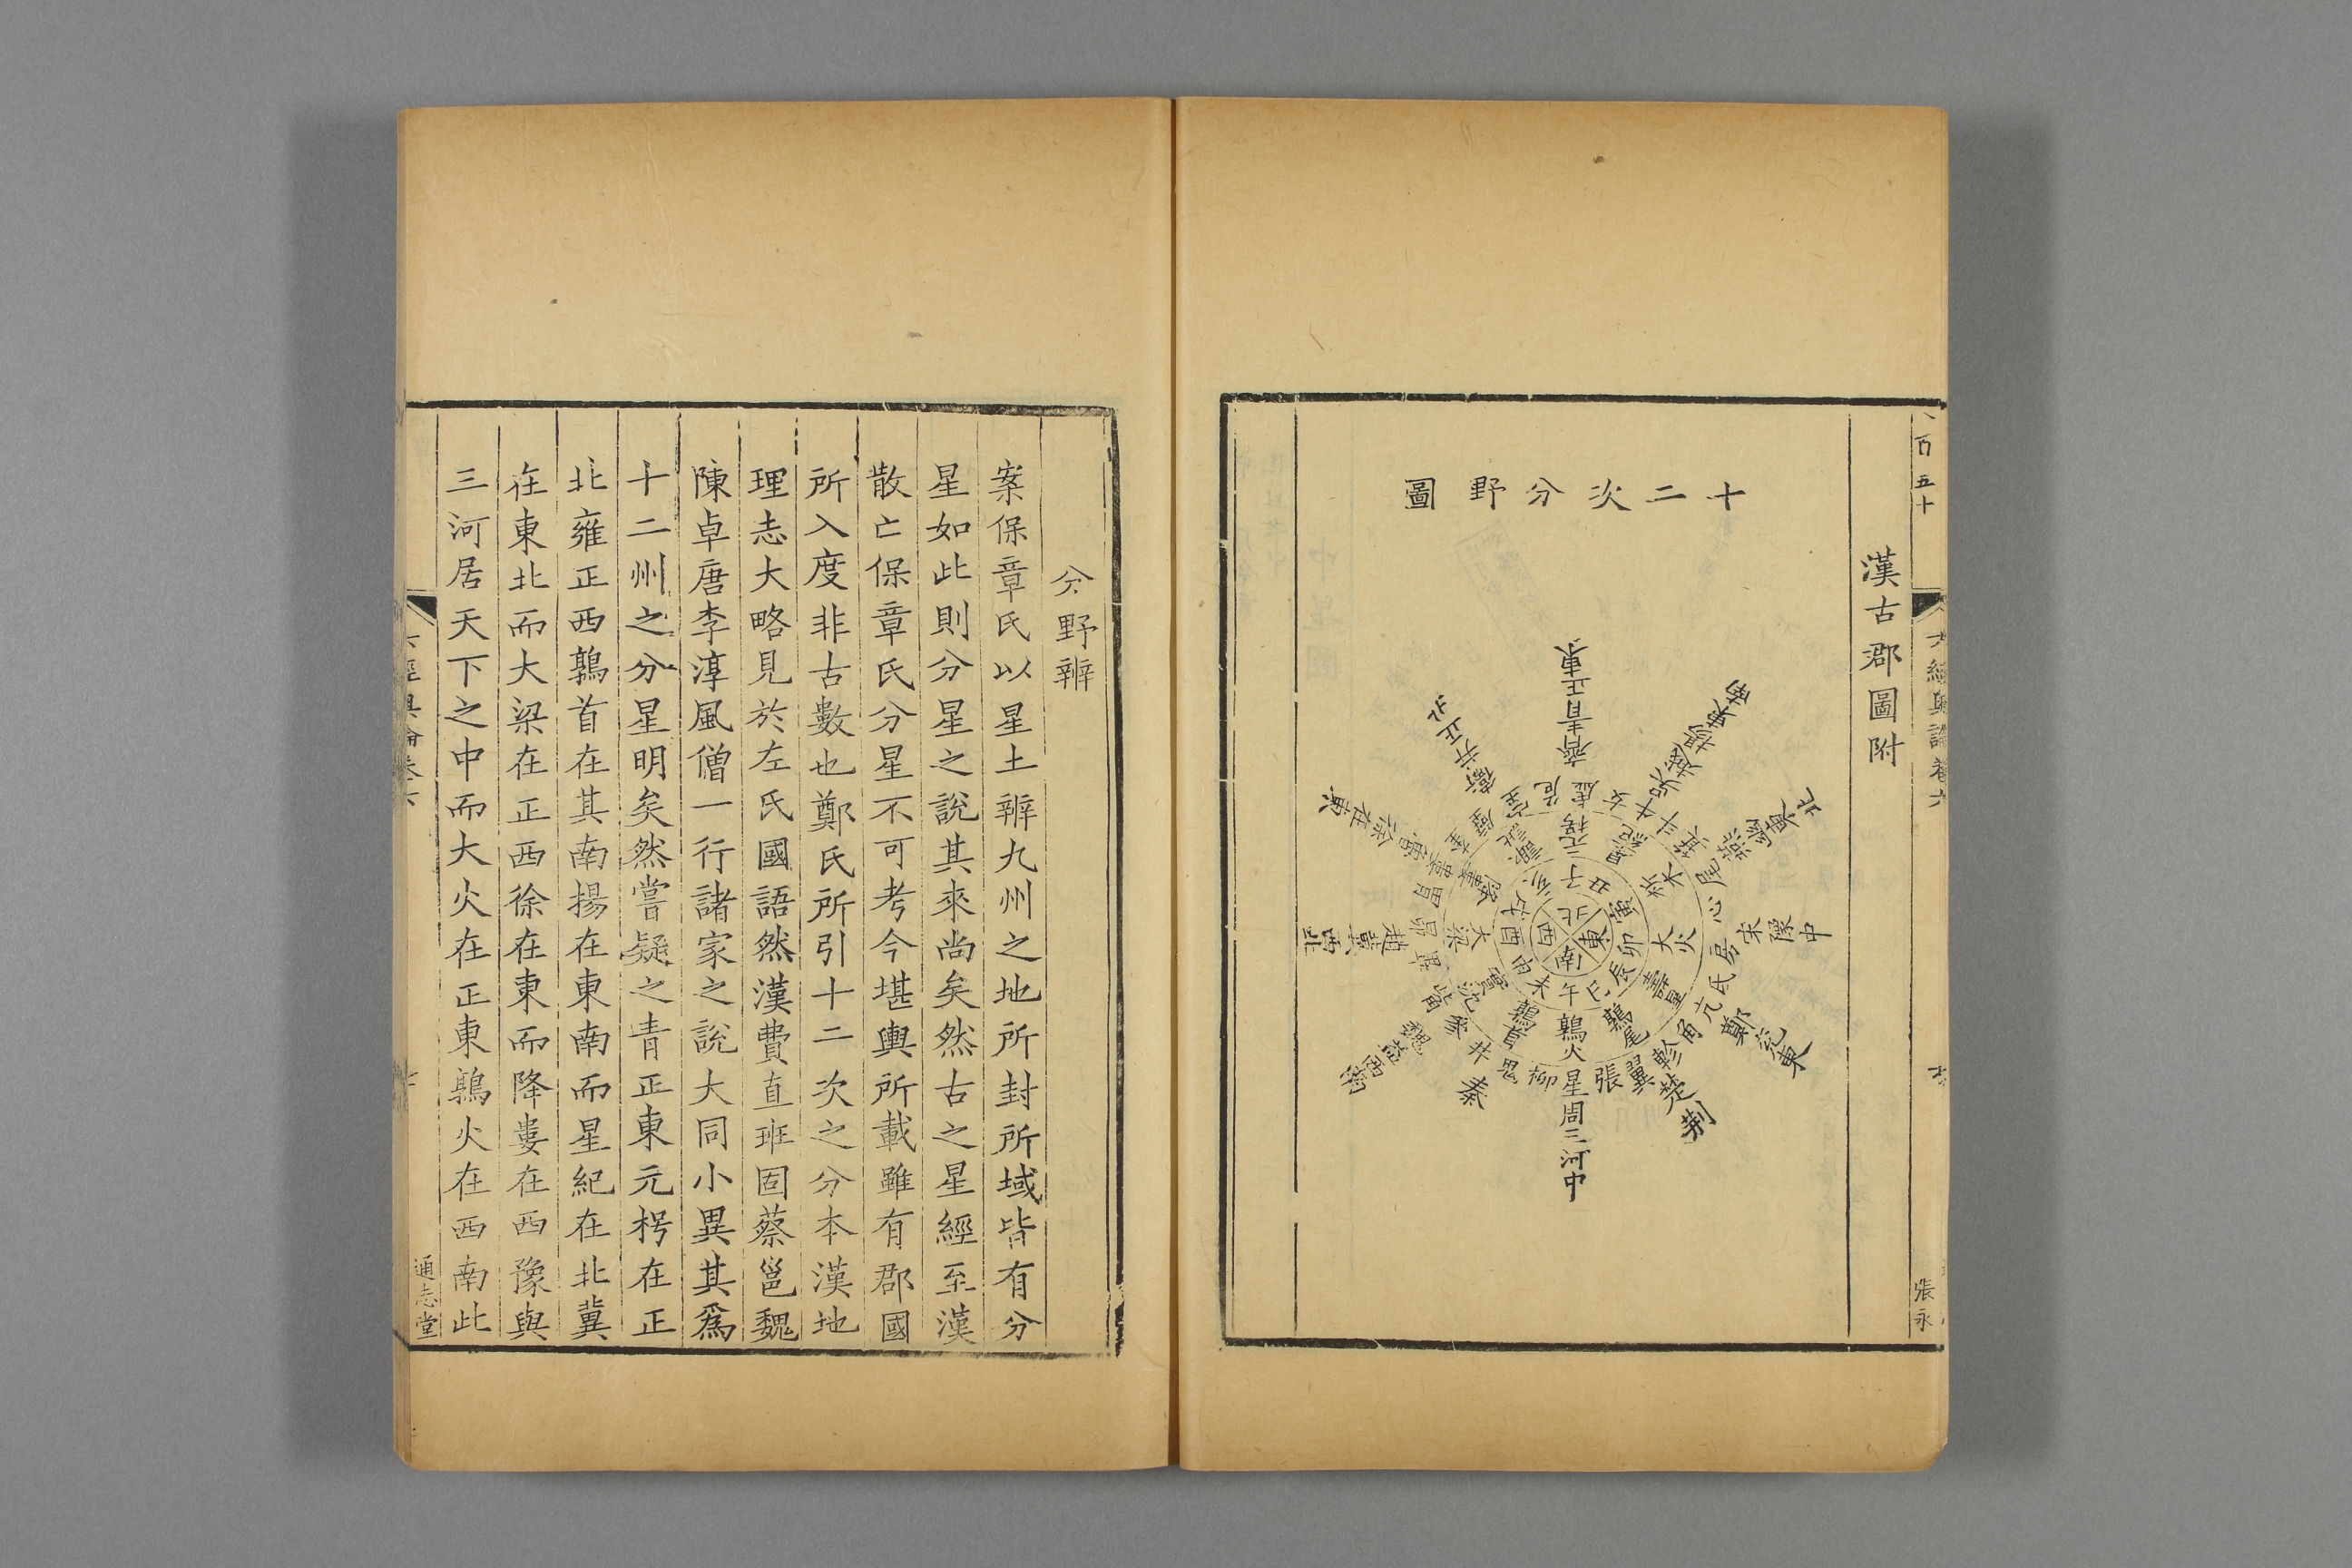 漢古郡圖附
十二次分野圖
北
東
南
西
子
丑
寅
卯
辰
巳
午
未
申
酉
戌
亥
元枵
星紀
析木
大火
壽星
鶉尾
鶉火
鶉首
實沈
大梁
降婁
虛危
齊青正東
女牛斗
吳越揚東南
箕尾
燕幽東北
心房氐
宋豫中
亢角
鄭兗東
軫翼
楚荆
張星柳
周三河中
鬼井
秦
參觜
魏益西南
畢昴胃
趙冀西北
婁奎
魯徐在東
壁室
衛并正北
張永
分野辨
案保章氏以星土辨九州之地所封所域皆有分
星如此則分星之說其來尚矣然古之星經至漢
散亡保章氏分星不可考今堪輿所載雖有郡國
所入度非古數也鄭氏所引十二次之分本漢地
理志大略見於左氏國語然漢費直班固蔡邕魏
陳卓唐李淳風僧一行諸家之說大同小異其爲
十二州之分星明矣然嘗疑之青正東元枵在正
北雍正西鶉首在其南揚在東南而星紀在北冀
在東北而大梁在正西徐在東而降婁在西豫與
三河居天下之中而大火在正東鶉火在西南此
通志堂